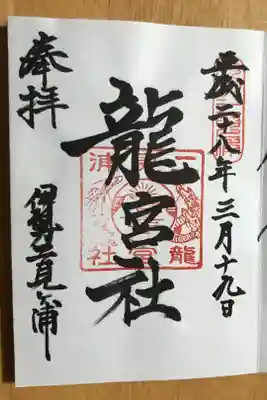 平成二十八年三月十九日
龍宮社
二見浦
龍宮社
奉拝
伊勢二見ヶ浦